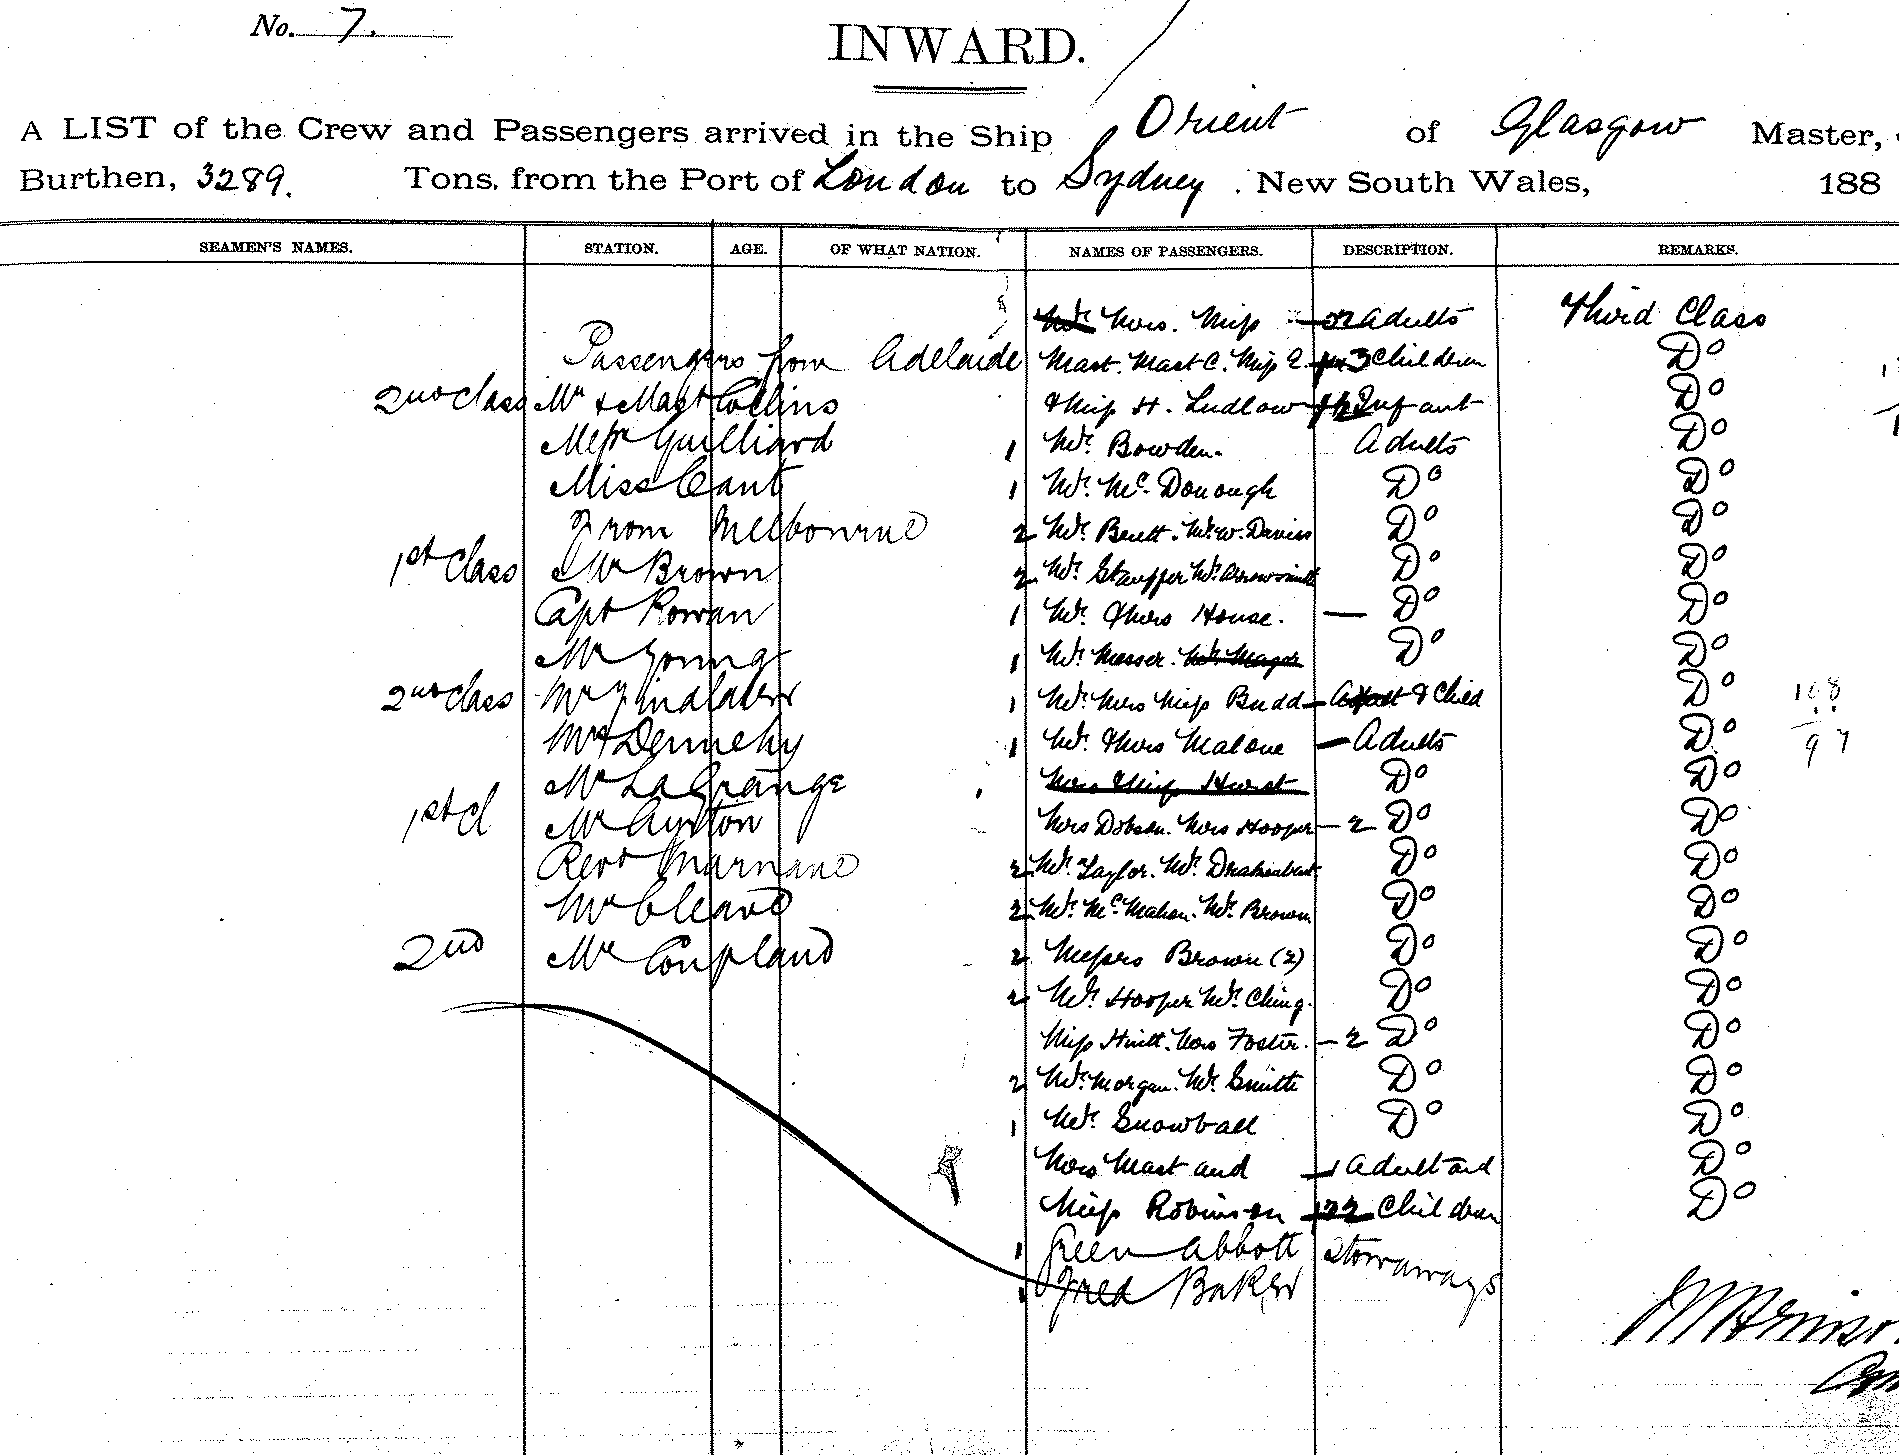 No. 7.
INWARD.
A LIST of the Crew and Passengers arrived in the Ship Orient of Glasgow Master,
Burthen, 3289. Tons. from the Port of London to Sydney. New South Wales, 188
SEAMEN'S NAMES. STATION. AGE. OF WHAT NATION. NAMES OF PASSENGERS. DESCRIPTION. REMARKS.
Passengers from Adelaide
2nd Class Mr & Mast Collins
Guilliard
Miss Cant
From Melbourne
1st Class Mr Brown
Capt Rowan
Mr Young
2nd Class Mr
Dennehy
Mr La Grange
1st Cl Mr Ayrton
Revd Marnane
Mr Cleave
2nd Mr Coupland
Mrs. Miss Adults Third Class
Mast. Mast C. Miss 3 Children Do
& Miss H. Ludlow Infant Do
1 Mr. Bowden. Adults Do
1 Mr. Mc. Donough Do Do
2 Mr. Mr. W. Davies Do Do
2 Mr. Stauffer Mr. Arrowsmith Do Do
1 Mr. & Mrs House. — Do Do
1 Mr. Messer. Do Do
1 Mr. Mrs Miss Budd — & Child Do
1 Mr. & Mrs Malone — Adults Do
Mrs & Miss Hurst Do Do
Mrs Dobson. Mrs Hooper — 2 Do Do
2 Mr. Taylor. Mr. Do Do
2 Mr. Mc. Mahon. Mr. Brown Do Do
2 Messrs Brown (2) Do Do
2 Mr. Hooper Mr. Ching. Do Do
Miss Mrs Foster. — 2 Do Do
2 Mr. Morgan. Mr. Smith Do Do
1 Mr. Snowball Do Do
Mrs Mast and 1 Adult and Do
Miss Robinson 2 Children Do
1 Abbott Stowaways
1 Fred Baker
108
97